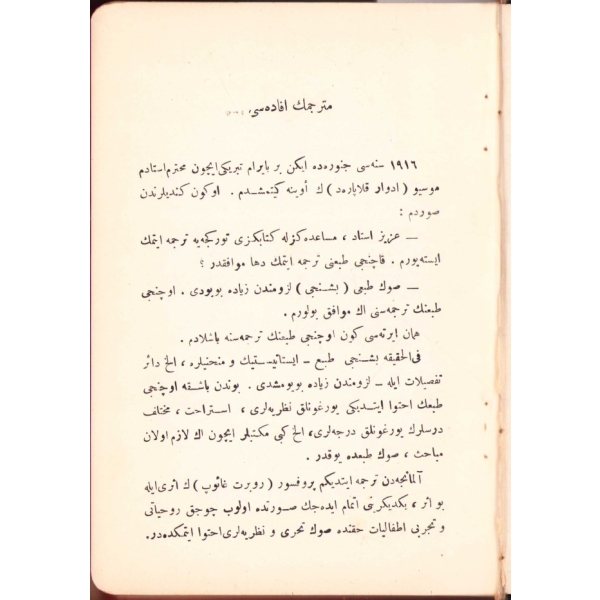 مترجمك افاده‌سی
١٩١٦ سنه‌سی جنوره‌ده ایكن بر بایرام تبریكی ایچون محترم استادم
موسیو ( ادوار قلاپاره‌د ) ك أوینه كیتمشدم . اوكون كندیلرندن
صوردم :
— عزیز استاد ، مساعده‌كزله كتابكزی توركجه‌یه ترجمه ایتمك
ایسته‌یورم . قاچنجی طبعنی ترجمه ایتمك دها موافقدر ؟
— صوك طبعی ( بشنجی ) لزومندن زیاده بویودی . اوچنجی
طبعنك ترجمه‌سنی اك موافق بولورم .
همان ایرته‌سی كون اوچنجی طبعنك ترجمه‌سنه باشلادم .
فی‌الحقیقه بشنجی طبع – ایستاتیستیك و منحنیلره ، الخ دائر
تفصیلات ایله – لزومندن زیاده بویومشدی . بوندن باشقه اوچنجی
طبعك احتوا ایتدیكی یورغونلق نظریه‌لری ، استراحت ، مختلف
درسلرك یورغونلق درجه‌لری، الخ كبی مكتبلر ایچون اك لازم اولان
مباحث ، صوك طبعده یوقدر .
آلمانجه‌دن ترجمه ایتدیكم پروفسور ( روبرت غائوپ ) ك اثری ایله
بو اثر ، یكدیكرینی اتمام ایده‌جك صورتده اولوب چوجق روحیاتی
و تجربی اطفالیات حقنده صوك تحری و نظریه‌لری احتوا ایتمكده‌در.